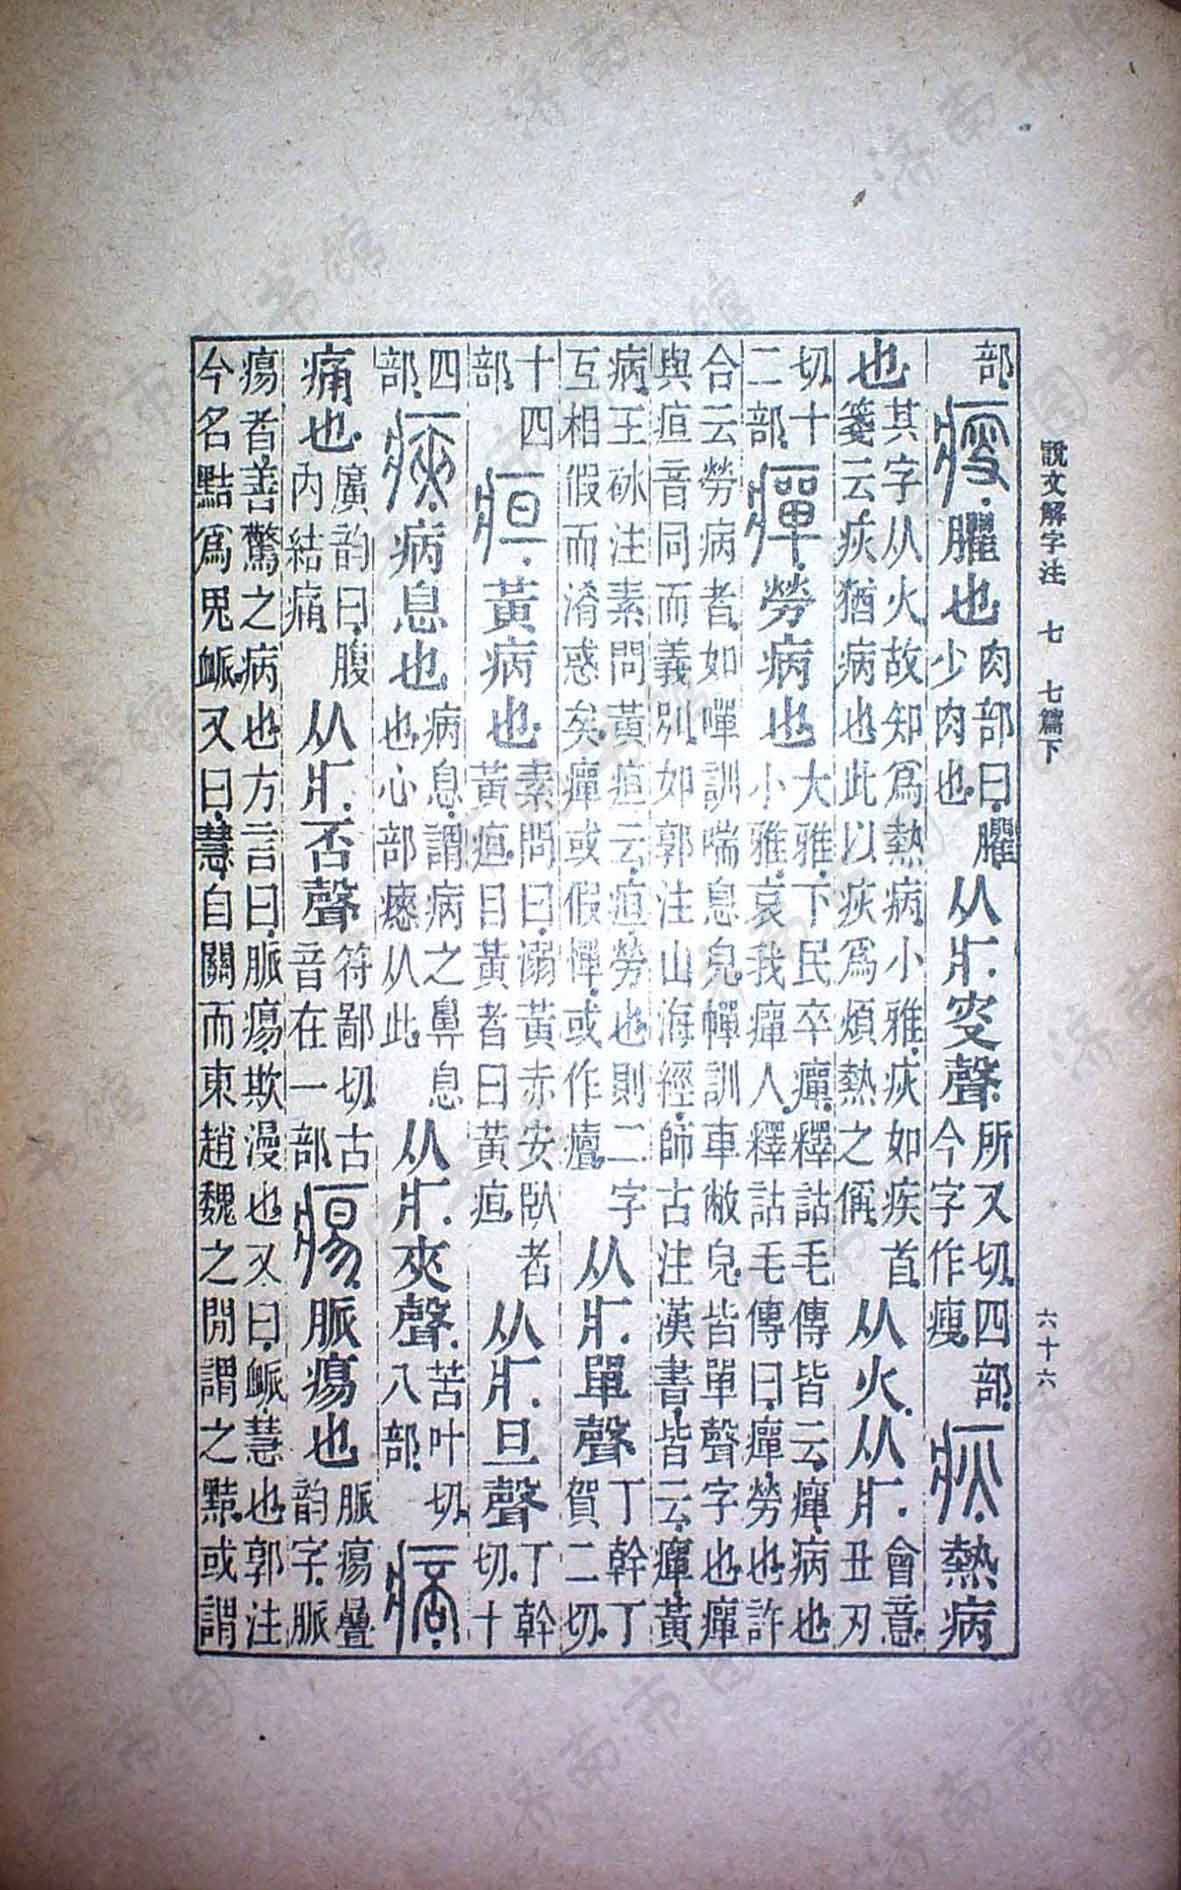 說文解字注　七　七篇下　六十六
部。瘦。臞也肉部曰。臞少肉也。从疒。叜聲。所又切。四部。今字作瘦。疢。熱病
也其字从火。故知爲熱病。小雅。疢如疾首。箋云。疢猶病也。此以疢爲煩熱之偁。从火。从疒。會意。丑刃
切。十二部。癉。勞病也大雅。下民卒癉。釋詁毛傳皆云。癉。病也小雅。哀我癉人。釋詁毛傳曰。癉。勞也。許
合云勞病者。如嘽訓喘息皃。幝訓車敝皃。皆單聲字也。癉與疸音同而義別。如郭注山海經。師古注漢書。皆云。癉。黃
病。王砅注素問黃疸云。疸。勞也。則二字互相假而淆惑矣。癉或假憚。或作癉。从疒。單聲。丁幹丁賀二切。
十四部。疸。黃病也素問曰。溺黃赤安臥者黃疸。目黃者曰黃疸。从疒。旦聲。丁幹切。十
四部。㾜。病息也病息。謂病之鼻息也。心部瘱从此。从疒。夾聲。苦叶切。八部。痞。
痛也。廣韵曰。腹內結痛。从疒。否聲。符鄙切。古音在一部。瘍。脈瘍也脈瘍疊韵字。脈
瘍者。善驚之病也。方言曰。脈瘍。欺漫也。又曰。䘑。慧也。郭注今名黠爲鬼䘑。又曰。慧。自關而東趙魏之閒謂之黠。或謂